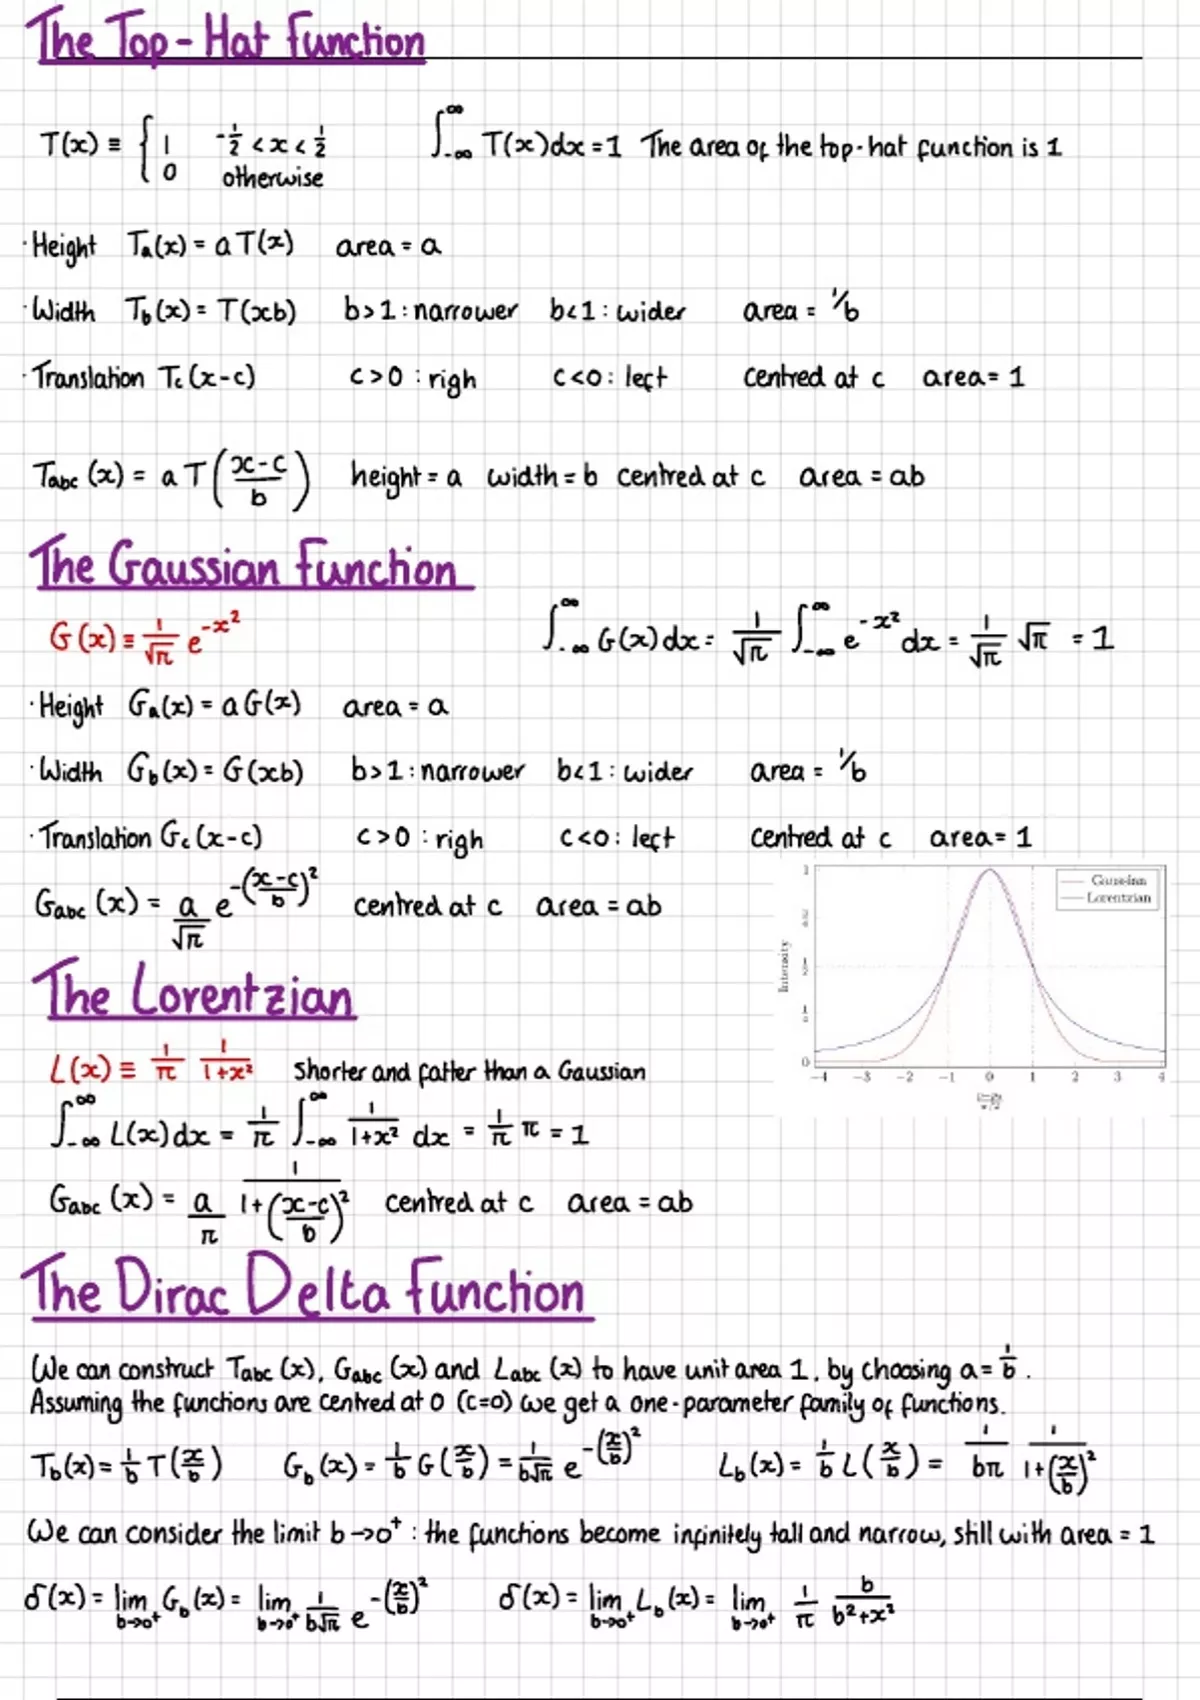 The Top-Hat Function
T(x) ≡ { 1 -1/2 < x < 1/2 ∫_{-∞}^{∞} T(x)dx = 1 The area of the top-hat function is 1
0 otherwise
· Height Ta(x) = a T(x) area = a
· Width Tb(x) = T(xb) b>1: narrower b<1: wider area = 1/b
· Translation Tc(x-c) c>0 : righ c<0: left centred at c area = 1
Tabc (x) = a T((x-c)/b) height = a width = b centred at c area = ab
The Gaussian Function
G(x) ≡ 1/√π e^{-x²} ∫_{-∞}^{∞} G(x)dx = 1/√π ∫_{-∞}^{∞} e^{-x²} dx = 1/√π √π = 1
· Height Ga(x) = a G(x) area = a
· Width Gb(x) = G(xb) b>1: narrower b<1: wider area = 1/b
· Translation Gc(x-c) c>0 : righ c<0: left centred at c area = 1
Gabc (x) = a/√π e^{-((x-c)/b)²} centred at c area = ab
Gaussian
Lorentzian
Intensity
1
1/2
0
-4 -3 -2 -1 0 1 2 3 4
The Lorentzian
L(x) ≡ 1/π 1/(1+x²) shorter and fatter than a Gaussian
∫_{-∞}^{∞} L(x)dx = 1/π ∫_{-∞}^{∞} 1/(1+x²) dx = 1/π π = 1
Gabc (x) = a/π 1/(1+((x-c)/b)²) centred at c area = ab
The Dirac Delta Function
We can construct Tabc (x), Gabc (x) and Labc (x) to have unit area 1, by choosing a = 1/b.
Assuming the functions are centred at 0 (c=0) we get a one-parameter family of functions.
Tb(x) = 1/b T(x/b) Gb (x) = 1/b G(x/b) = 1/(b√π) e^{-(x/b)²} Lb (x) = 1/b L(x/b) = 1/(bπ) 1/(1+(x/b)²)
We can consider the limit b→0⁺ : the functions become infinitely tall and narrow, still with area = 1
δ(x) = lim_{b→0⁺} Gb (x) = lim_{b→0⁺} 1/(b√π) e^{-(x/b)²} δ(x) = lim_{b→0⁺} Lb (x) = lim_{b→0⁺} 1/π b/(b²+x²)